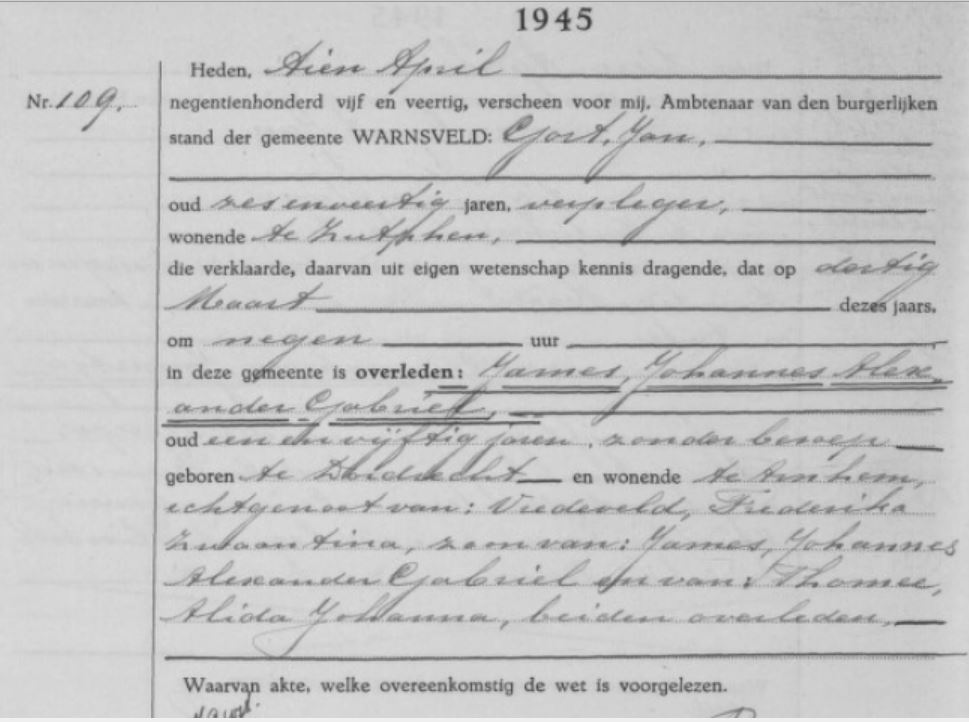 1945
Heden, tien April
Nr. 109. negentienhonderd vijf en veertig, verscheen voor mij, Ambtenaar van den burgerlijken
stand der gemeente WARNSVELD: Gort, Jan,
oud zesenveertig jaren, verpleger,
wonende te Zutphen,
die verklaarde, daarvan uit eigen wetenschap kennis dragende, dat op dertig
Maart dezes jaars,
om negen uur
in deze gemeente is overleden: James, Johannes Alex-
ander Gabriël,
oud een en vijftig jaren, zonder beroep
geboren te Dordrecht en wonende te Arnhem,
echtgenoot van: Vredeveld, Frederika
Zwaantina, zoon van: James, Johannes
Alexander Gabriel en van: Thomee,
Alida Johanna, beiden overleden.
Waarvan akte, welke overeenkomstig de wet is voorgelezen.